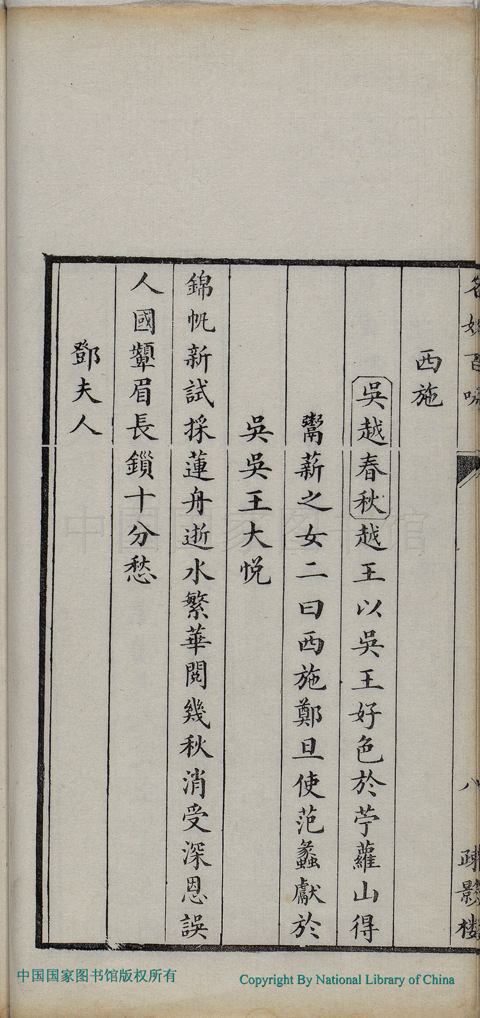 名姝百咏
八
疎影楼
西施
吳越春秋越王以吳王好色於苧蘿山得
鬻薪之女二曰西施鄭旦使范蠡獻於
吳吳王大悅
錦帆新試採蓮舟逝水繁華閱幾秋消受深恩誤
人國顰眉長鎖十分愁
鄧夫人
中国国家图书馆
中国国家图书馆版权所有
Copyright By National Library of China